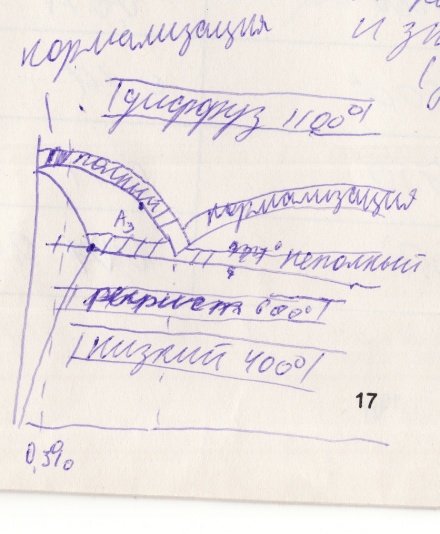 нормализация
и
диффуз 1100°
полный
нормализация
А₃
727° неполный
рекрист 600°
низкий 400°
17
0,3%